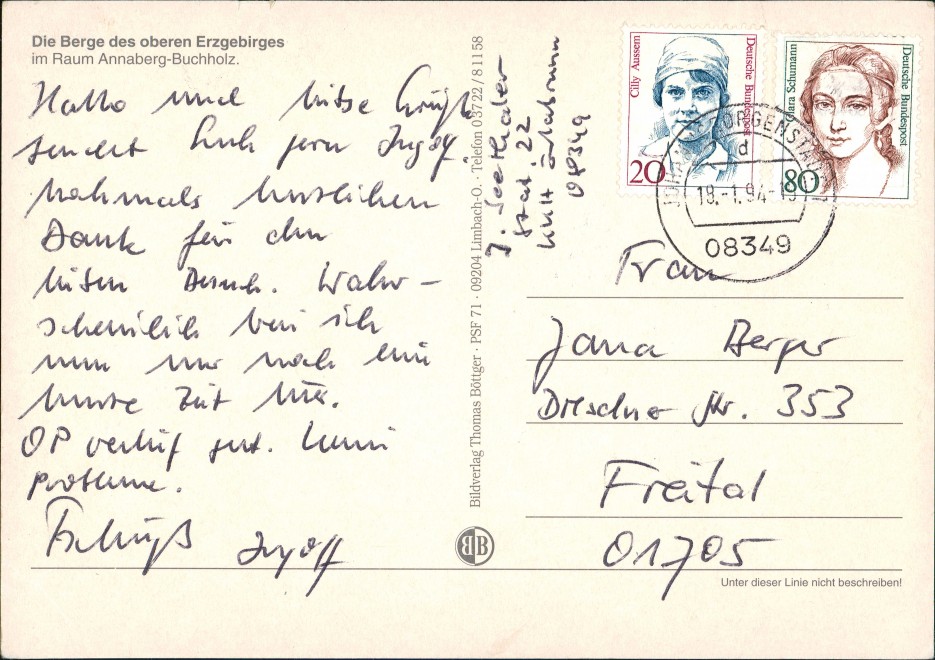 Die Berge des oberen Erzgebirges
im Raum Annaberg-Buchholz.
Hallo und liebe Grüße
sendet Euch
nochmals herzlichen
Dank für den
lieben Besuch. Wahr-
scheinlich bin ich
nun nur noch eine
kurze Zeit hier.
OP verlief gut. Keine
Probleme.
Tschüß
Bildverlag Thomas Böttger · PSF 71 · 09204 Limbach-O. · Telefon 03722/81158
J.
Stat. 22
08349
Cilly Aussem
Deutsche Bundespost
20
Clara Schumann
Deutsche Bundespost
80
JOHANNGEORGENSTADT
d
18.-1.94-
08349
Frau
Jana Berger
Dresdner Str. 353
Freital
01705
B B
Unter dieser Linie nicht beschreiben!